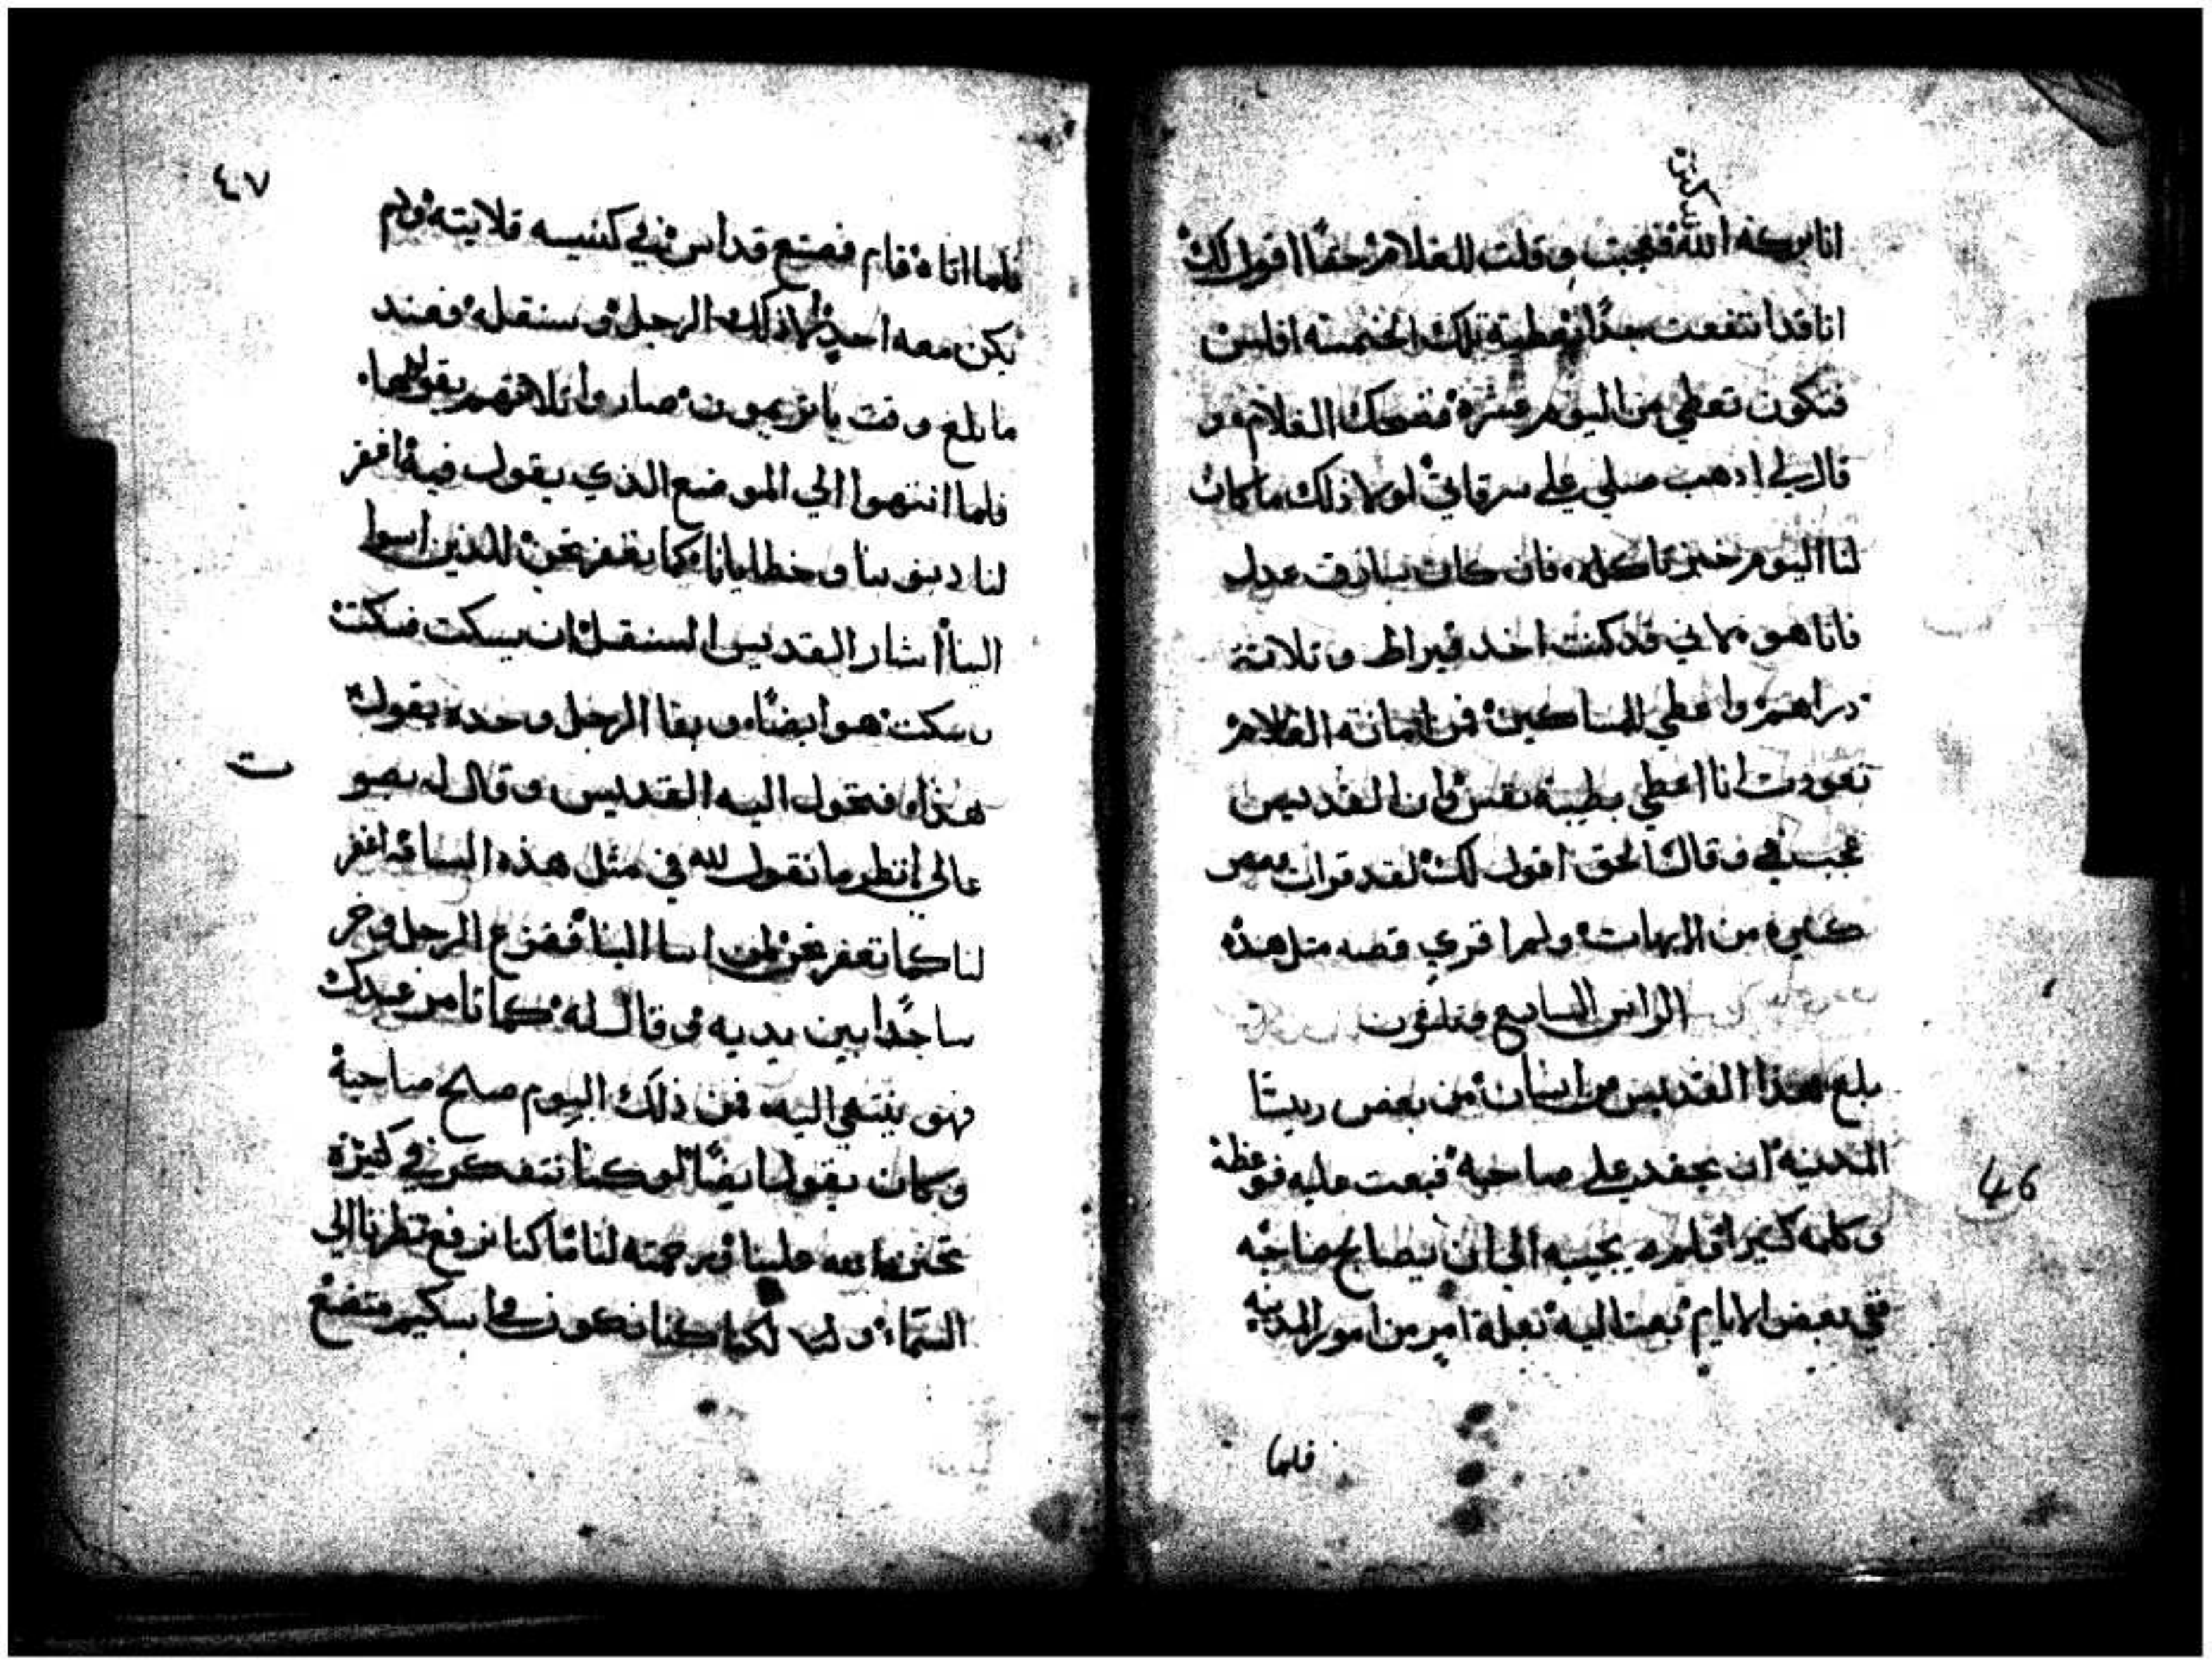 انا بركة الله فتعجبت وقلت للغلام حقًا اقول لك
انا قد انتفعت جدًا بعطية تلك الخمسة افلس
فتكون تعطي من اليوم عشرة فضحك الغلام و
قال لي ادهب صلي علي سرقاتي لولا ذلك ما كان
لنا اليوم خبز ناكله فان كان سارق عدل
فانا هو لاني قد كنت اخد قيراط وتلاتة
دراهم واعطي المساكين فمن امانة الغلام
تعودت انا اعطي بطيبة نفس وان القديس
عجب وقال الحق اقول لك لقد قرات قصص
كثيره من الابهات ولم اقري قصه متل هذه
الراس السابع وتلتون
بلغ هذا القديس عن انسان من بعض ريستا
المدينة ان يحقد علي صاحبه فبعت عليه فوعظه
وكلمه كثيرا فلم يجيبه الي ان يصالح صاحبه
ففي بعض الايام بعت اليه بعلة امر من امور المدينه
فلما
46
٤٧
فلما اتاه قام فصنع قداس في كنيسه قلايته ولم
يكن معه احد الا ذلك الرجل وسنقله فعند
ما بلغ وقت يا ابونا صاروا تلاتتهم يقولها
فلما انتهوا الي الموضع الذي يقول فيه اغفر
لنا ديوننا وخطايانا كما نغفر نحن للذين اسوا
الينا اشار القديس لسنقل ان يسكت فسكت
وسكت هو ايضًا وبقا الرجل وحده يقول
هذا فتحول اليه القديس وقال له بصو
ت
عالي انظر ما تقول لله في مثل هذه الساعه اغفر
لنا كما نغفر نحن لمن اسا الينا ففزع الرجل وخر
ساجدًا بين يديه وقال له كما تامر عبدك
فهو ينتهي اليه فمن ذلك اليوم صلح صاحبه
وكان يقول ايضًا لو كنا نتفكر في كثرة
تحنن الله علينا ورحمته لنا ما كنا نرفع نظرنا الي
السماء ولا لكنا كنا نكون مساكين متضع